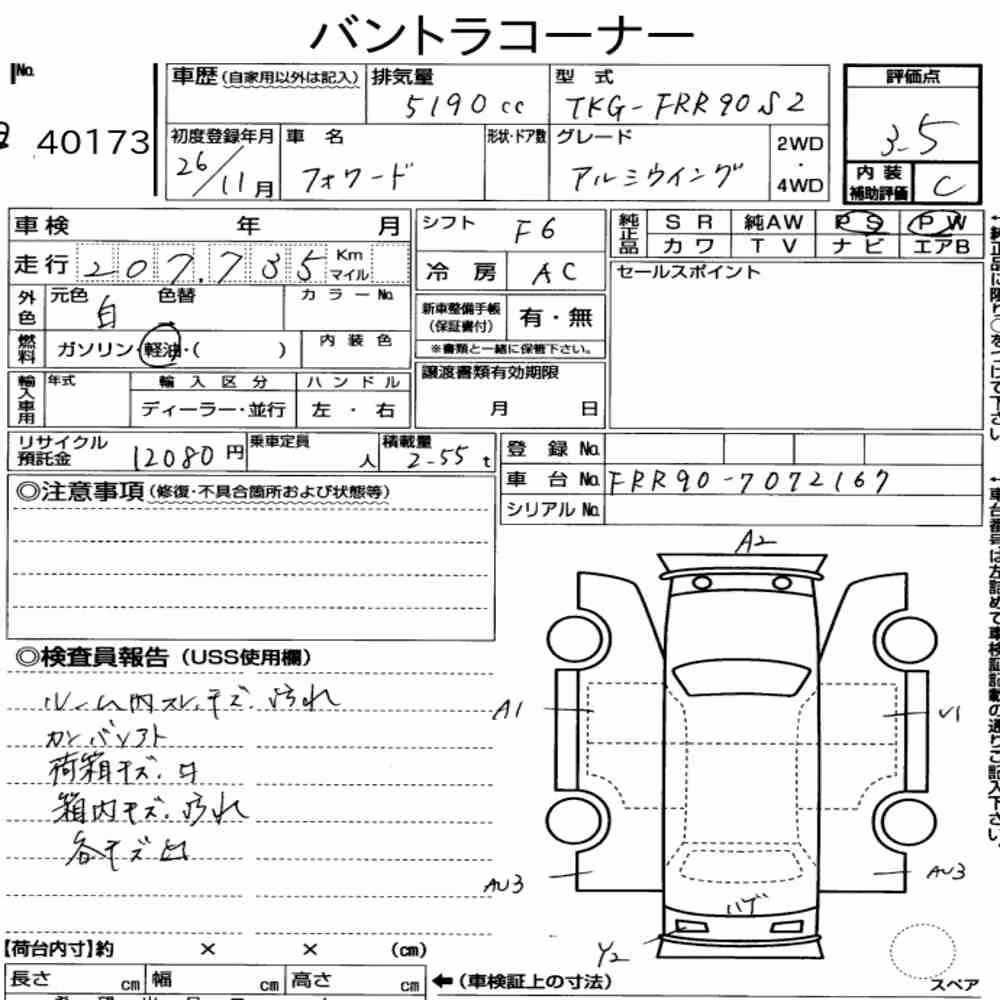 バントラコーナー
No.
40173
車歴 (自家用以外は記入)
排気量
5190 cc
型 式
TKG-FRR90S2
評価点
3.5
初度登録年月
26/11 月
車 名
フォワード
形状・ドア数
グレード
アルミウイング
2WD
・
4WD
内 装
補助評価
C
車 検 年 月
シフト
F6
純正品
S R 純AW P S P W
カ ワ T V ナ ビ エアB
走 行 207,735 Km
マイル
冷 房
AC
セールスポイント
外色
元色 白 色替
カ ラ ー No.
新車整備手帳
(保証書付)
有・無
※書類と一緒に保管下さい。
燃料
ガソリン・軽油・( )
内 装 色
輸入車用
年式
輸 入 区 分
ハ ン ド ル
ディーラー・並行
左 ・ 右
譲渡書類有効期限
月 日
リサイクル
預託金
12080 円
乗車定員
人
積載量
2.55 t
登 録 No.
車 台 No. FRR90-7072167
シリアル No.
◎注意事項 (修復・不具合箇所および状態等)
←純正品に限り○をつけて下さい
←車台番号は左詰めで車検証記載の通りご記入下さい。
◎検査員報告 (USS使用欄)
ルーム内スレ、キズ、汚れ
カンバンソフト
荷箱キズ、凹
箱内キズ、汚れ
各キズ凹
A2
A1
U1
AU3
AU3
ハゲ
Y2
スペア
【荷台内寸】約 × × (cm)
長さ cm 幅 cm 高さ cm
←(車検証上の寸法)